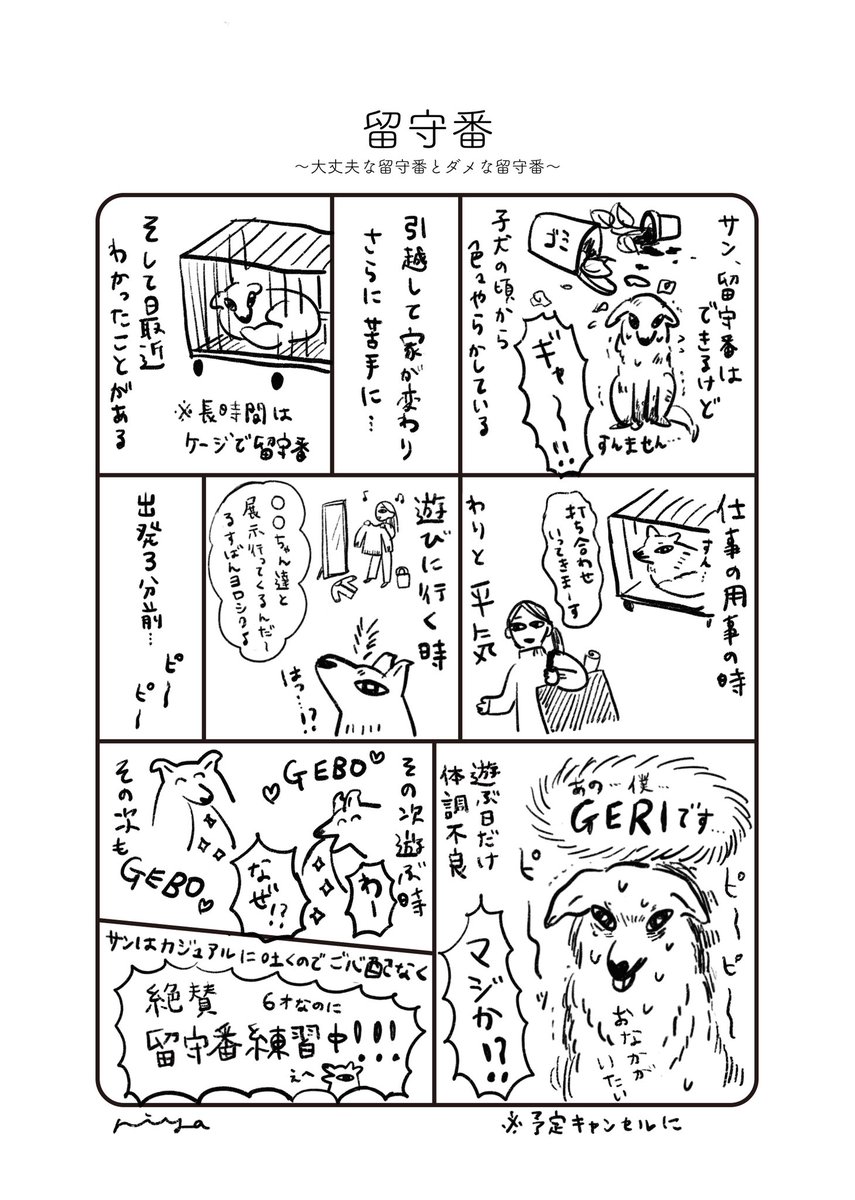 留守番
〜大丈夫な留守番とダメな留守番〜
サン、留守番は
できるけど
ゴミ
子犬の頃から
色々やらかしている
ギャー!!
すんません…
引越して家が変わり
さらに苦手に…
※長時間は
ケージで留守番
そして最近
わかったことがある
仕事の用事の時
すん…
打ち合わせ
いってきまーす
わりと平気
遊びに行く時
○○ちゃん達と
展示行ってくるんだ〜
るすばんヨロシクね
はっ…!?
出発3分前…
ピ〜
ピ〜
あの…僕…
GERIです…
ピ〜ピ〜
ピ〜ッ
おなかが
いたい
遊ぶ日だけ
体調不良
マジか!?
※予定キャンセルに
その次遊ぶ時
GEBO
わー
なぜ!?
その次も
GEBO
サンはカジュアルに吐くのでご心配なく
絶賛
6才なのに
留守番練習中!!!
えへ
niya